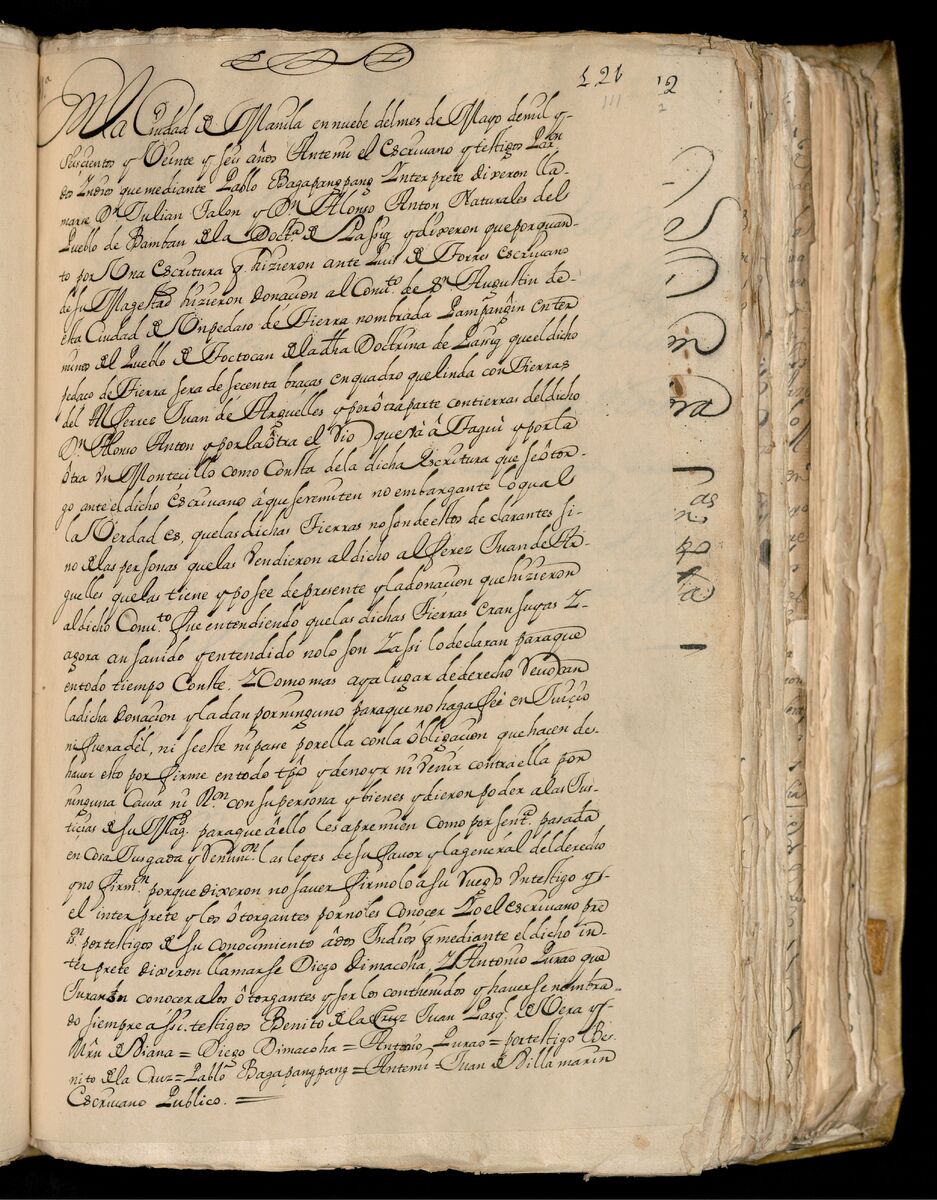 121
12
111
2
En la Ciudad de Manila en nuebe del mes de Mayo de mil y
seiscientos y Veinte y seis años Antemi el escrivano y testigos Par.on
dos Indios que mediante Pablo Bagapangpang Interprete dixeron lla-
marse Dn Julian Talon y Dn Alonso Anton Naturales del
Pueblo de Bamban de la Doctra de Passig y dixeron que por quan-
to por Una escritura q hizieron ante Luis de Torres escrivano
de su Magestad hizieron donacion al Convto de Sn Augustin de-
esta Ciudad de Un pedaso de Tierra nombrada Pampangin en ter
minos del Pueblo de Toctocan de la dha Doctrina de Passig que el dicho
pedaco de Tierra sera de secenta braças en quadro que linda con Tierras
del Alferez Juan de Arguelles y por ôtra parte con tierras del dicho
Dn Alonso Anton y por la ôtra el Rio que và â Taguì y por la
ôtra Un Montecillo como Consta de la dicha Escritura que se ôtor-
go ante el dicho escrivano â que se remiten no embargante lo qual
la Verdad es, que las dichas Tierras no son de estos declarantes si-
no de las personas que las Vendieron al dicho alferez Juan de Ar-
guelles que las tiene y posee de presente y la donacion que hizieron
al dicho Convto fue entendiendo que las dichas Tierras eran suyas Y-
agora an savido y entendido no lo son Y assi lo declaran para que
en todo tiempo Conste. Y Como mas aya lugar de derecho revocan
la dicha donacion y la dan por ninguno para que no haga feè en Juicio
ni fuera dèl, ni se este ni passe por ella con la ôbligacion que hacen de-
haver esto por firme en todo tpo y de no yr ni venir contra ella por
ninguna Causa ni Rn con su persona y bienes y dieron poder a las Jus-
ticias de su Magd para que â ello les apremien como por sentª pasada
en cosa Jusgada y renunon las leyes de su favor y la general del derecho
y no firmon porque dixeron no saver firmolo a su ruego Un testigo y-
el interprete y los ôtorgantes por no les Conocer Yo el escrivano pre
on por testigos de su conocimiento â dos Indios q mediante el dicho in-
terprete dixeron llamarse Diego Dimacoha, Y Antonio Purao que
Juraron conocer a los ôtorgantes y ser los conthenidos y haverse nombra-
do siempre assi. testigos Benito de la Cruz Juan Pasql de Vera y-
Mrn de Viana = Diego Dimacoha = Antonio Purao = por testigo Be-
nito de la Cruz = Pablo Bagapangpang = Antemi Juan de Villa marin
Escrivano Publico.